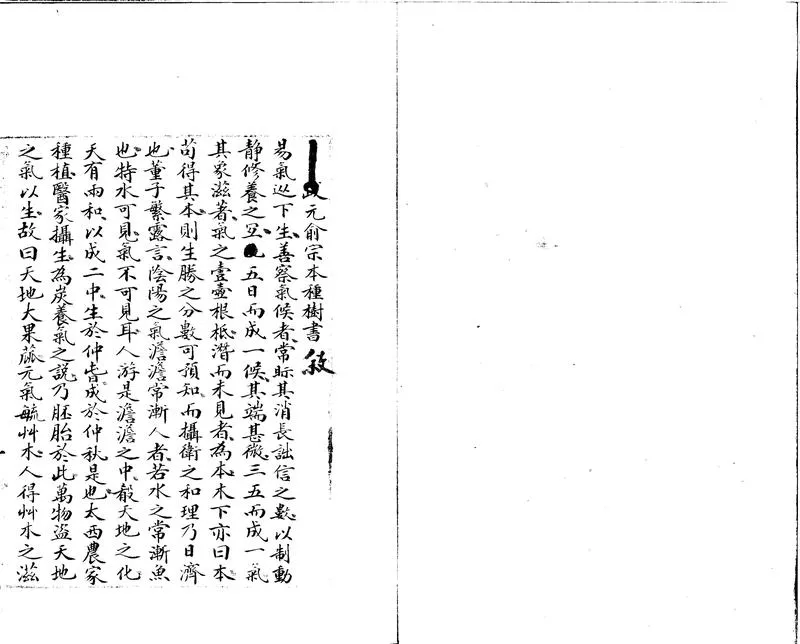 元俞宗本種樹書敘
易氣從下生善察氣候者常眎其消長詘信之數以制動
静修養之 五日而成一候其端甚微三五而成一氣
其象滋著氣之壹壺根柢潛而未見者為本木下亦曰本
苟得其本則生勝之分數可預知而攝衛之和理乃日濟
也董子繁露言陰陽之氣澹澹常漸人者若水之常漸魚
也特水可見氣不可見耳人游是澹澹之中殽天地之化
天有兩和以成二中生於仲春成於仲秋是也太西農家
種植醫家攝生為炭養氣之說乃胚胎於此萬物盜天地
之氣以生故曰天地大果蓏元氣毓艸木人得艸木之滋